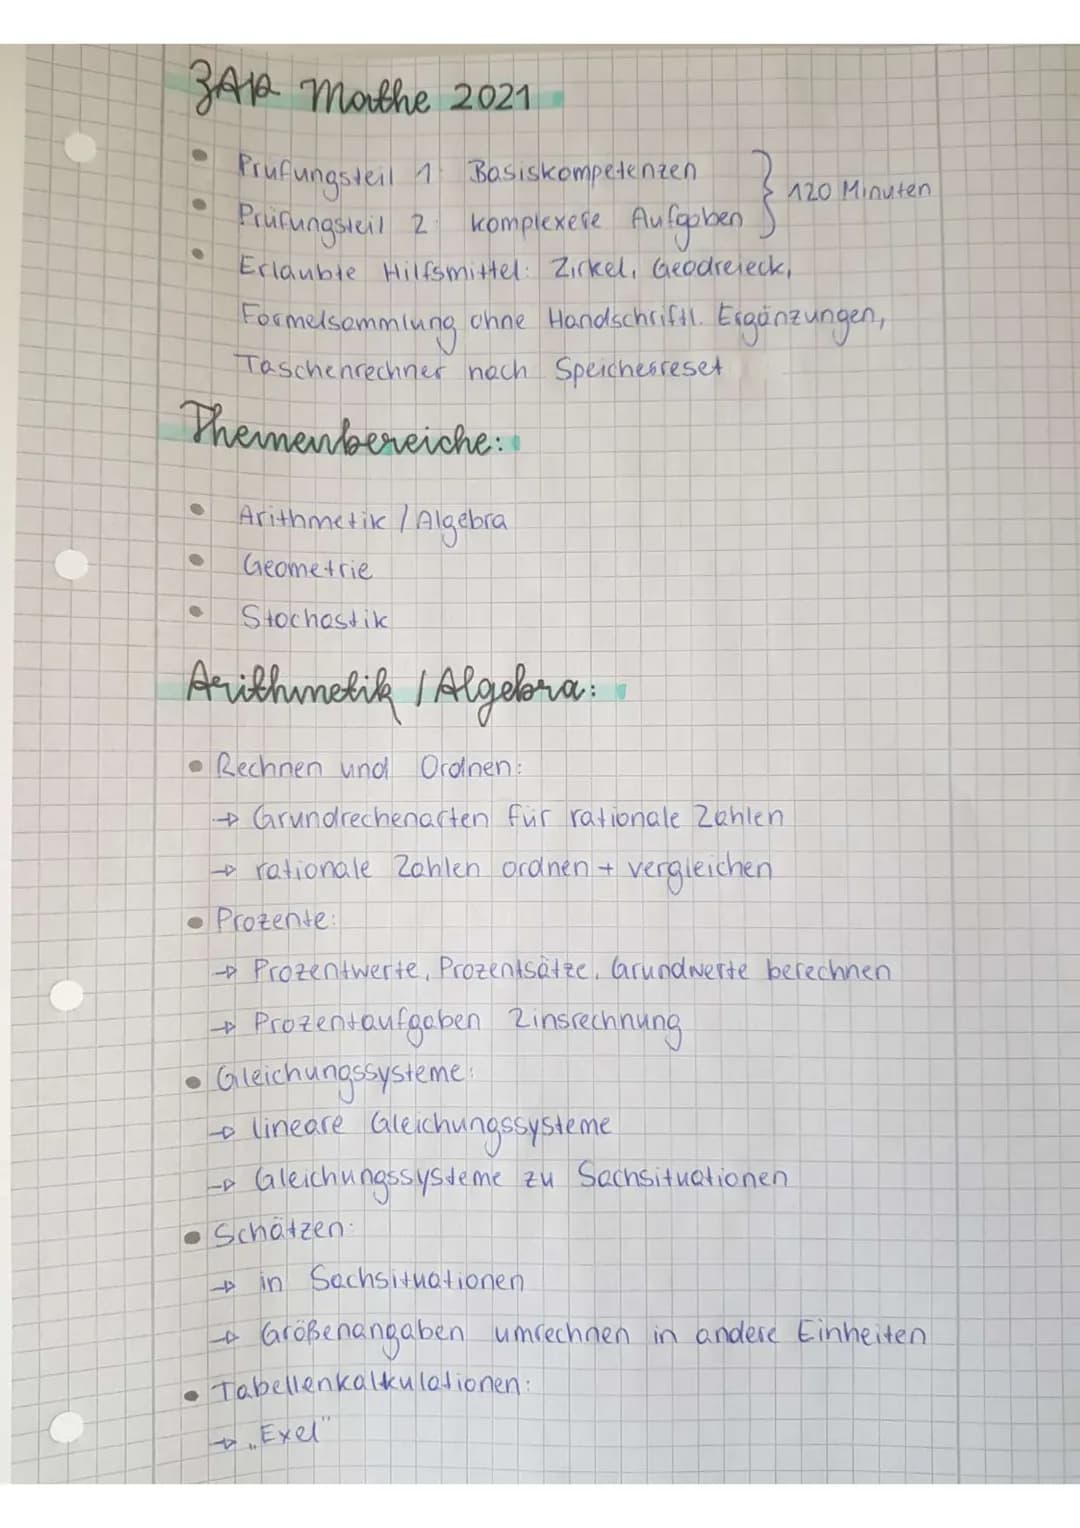 ZAP Mathe 2021
• Prüfungsteil 1: Basiskompetenzen
• Prüfungsteil 2: komplexere Aufgaben } 120 Minuten
• Erlaubte Hilfsmittel: Zirkel, Geodreieck,
Formelsammlung ohne Handschriftl. Ergänzungen,
Taschenrechner nach Speicherreset
Themenbereiche:
• Arithmetik / Algebra
• Geometrie
• Stochastik
Arithmetik / Algebra:
• Rechnen und Ordnen:
→ Grundrechenarten für rationale Zahlen
→ rationale Zahlen ordnen + vergleichen
• Prozente:
→ Prozentwerte, Prozentsätze, Grundwerte berechnen
→ Prozentaufgaben Zinsrechnung
• Gleichungssysteme:
→ lineare Gleichungssysteme
→ Gleichungssysteme zu Sachsituationen
• Schätzen:
→ in Sachsituationen
→ Größenangaben umrechnen in andere Einheiten
• Tabellenkalkulationen:
→ „Exel"